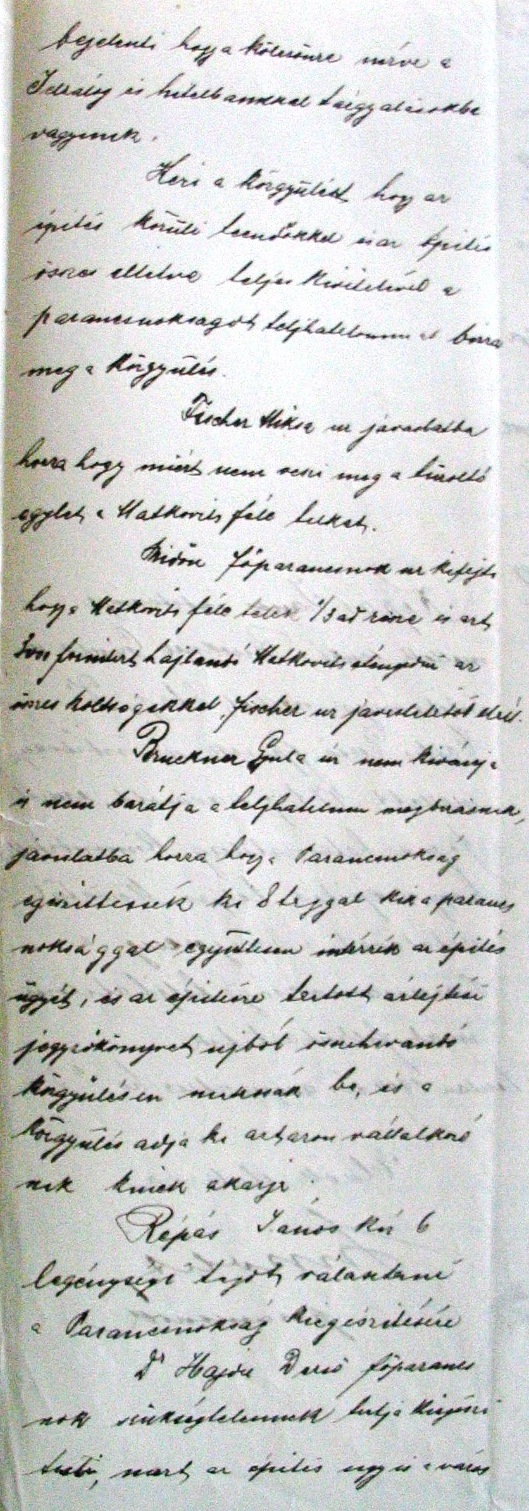 bejelenti hogy a kölcsönre nézve a
Jelzálog és hitelbankkal tárgyalásokba
vagyunk.
Kéri a közgyűlést hogy az
építés körüli teendőkkel és az építés
összes teljes kivitelével a
parancsnokságot teljhatalommal bizza
meg a közgyűlés.
Fischer Miksa ur javaslatba
hozza hogy miért nem veszi meg a tüzoltó
egylet a Matkovits féle telket.
főparancsnok ur kifejti
hogy a Matkovits féle telek 1/3ad része és azt
forintért hajlandó Matkovits átengedni az
összes költségekkel, fischer ur javaslatától eláll.
Bruckner Gyula ur nem kivánja
is nem barátja a teljhatalom megbizásnak,
javaslatba hozza hogy a Parancsnokság
egészittessék ki 8 taggal kik a parancs
noksággal együttesen intézzék az építés
ügyét, és az építésre tartott árlejtési
jegyzőkönyvet ujból összehivandó
közgyűlésen mutassák be, és a
közgyűlés adja ki aztaron vállalkozó
nak kinek akarja.
Répás János kér 6
legénységi tagot választani
a Parancsnokság kiegészitésére
Dr Hajdu Dezső főparancs
nok szükségtelennek tartja kiegészi
teni, mert az építés ugy is a város